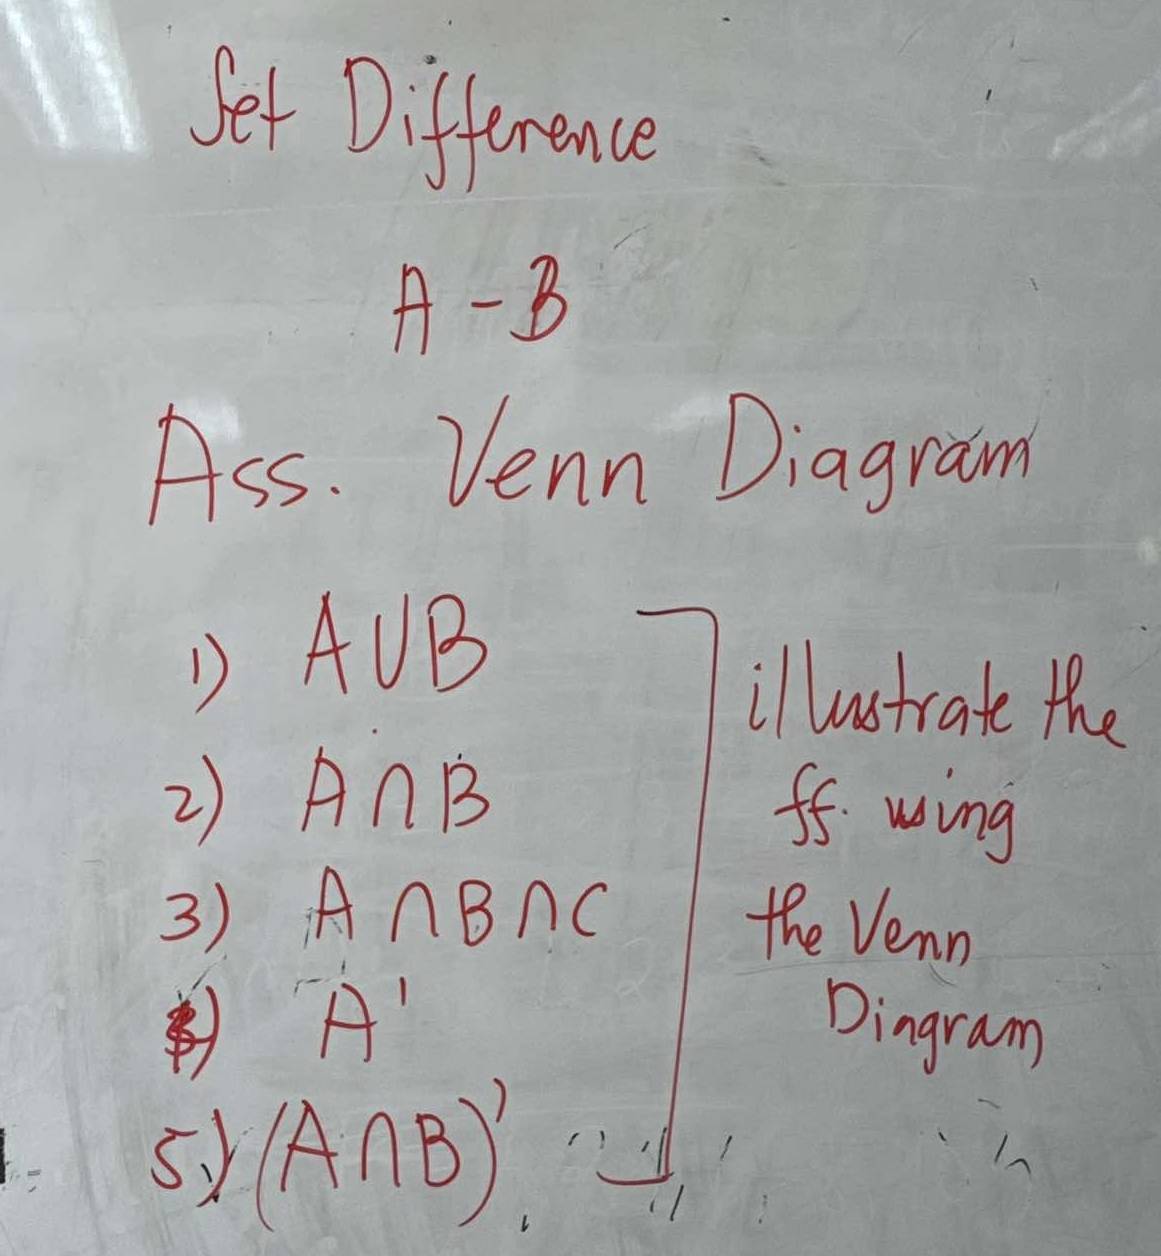 Set Difference
A - B
Ass. Venn Diagram
1) A∪B
2) A∩B
3) A∩B∩C
) A'
5) (A∩B)'
illustrate the
ff. using
the Venn
Diagram